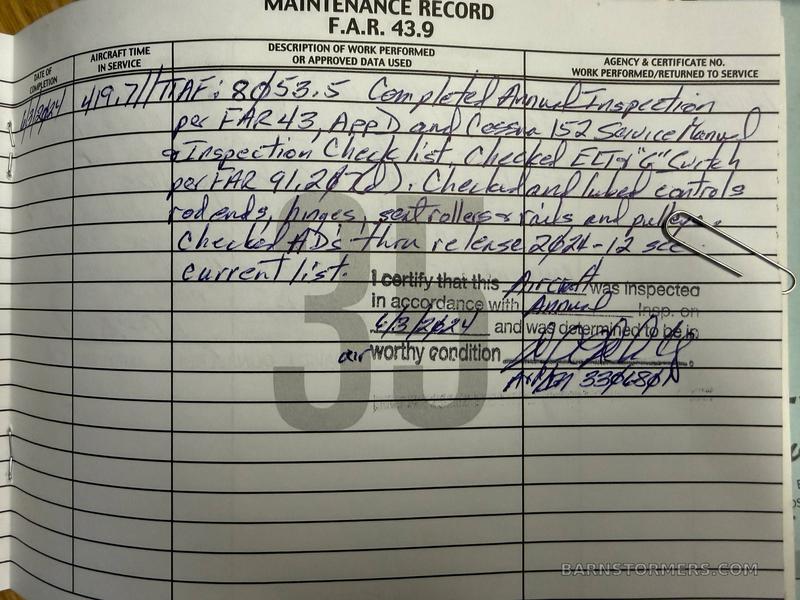 MAINTENANCE RECORD
F.A.R. 43.9
DATE OF COMPLETION
AIRCRAFT TIME IN SERVICE
DESCRIPTION OF WORK PERFORMED OR APPROVED DATA USED
AGENCY & CERTIFICATE NO. WORK PERFORMED/RETURNED TO SERVICE
6/3/2024 419.7 TTAF: 8053.5 Completed Annual Inspection
per FAR 43, App D and Cessna 152 Service Manual
& Inspection Checklist. Checked ELT & "G" Switch
per FAR 91.207(d). Checked and lubed controls
rod ends, hinges, seat rollers & rails and pulleys.
Checked ADs thru release 2024-12 see
current list.
I certify that this Aircraft was inspected
in accordance with Annual Insp. on
6/3/2024 and was determined to be in
airworthy condition
A&P/IA 330680
35
BARNSTORMERS.COM